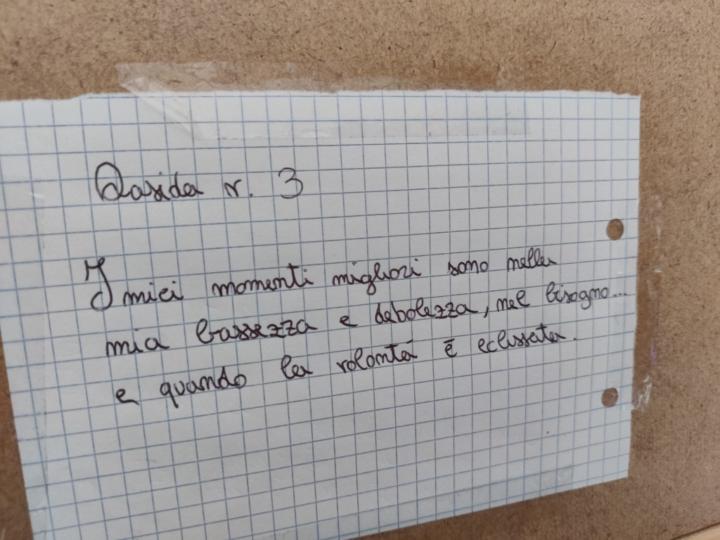 Qasida n. 3
I miei momenti migliori sono nella
mia bassezza e debolezza, nel bisogno...
e quando la volontà è eclissata.